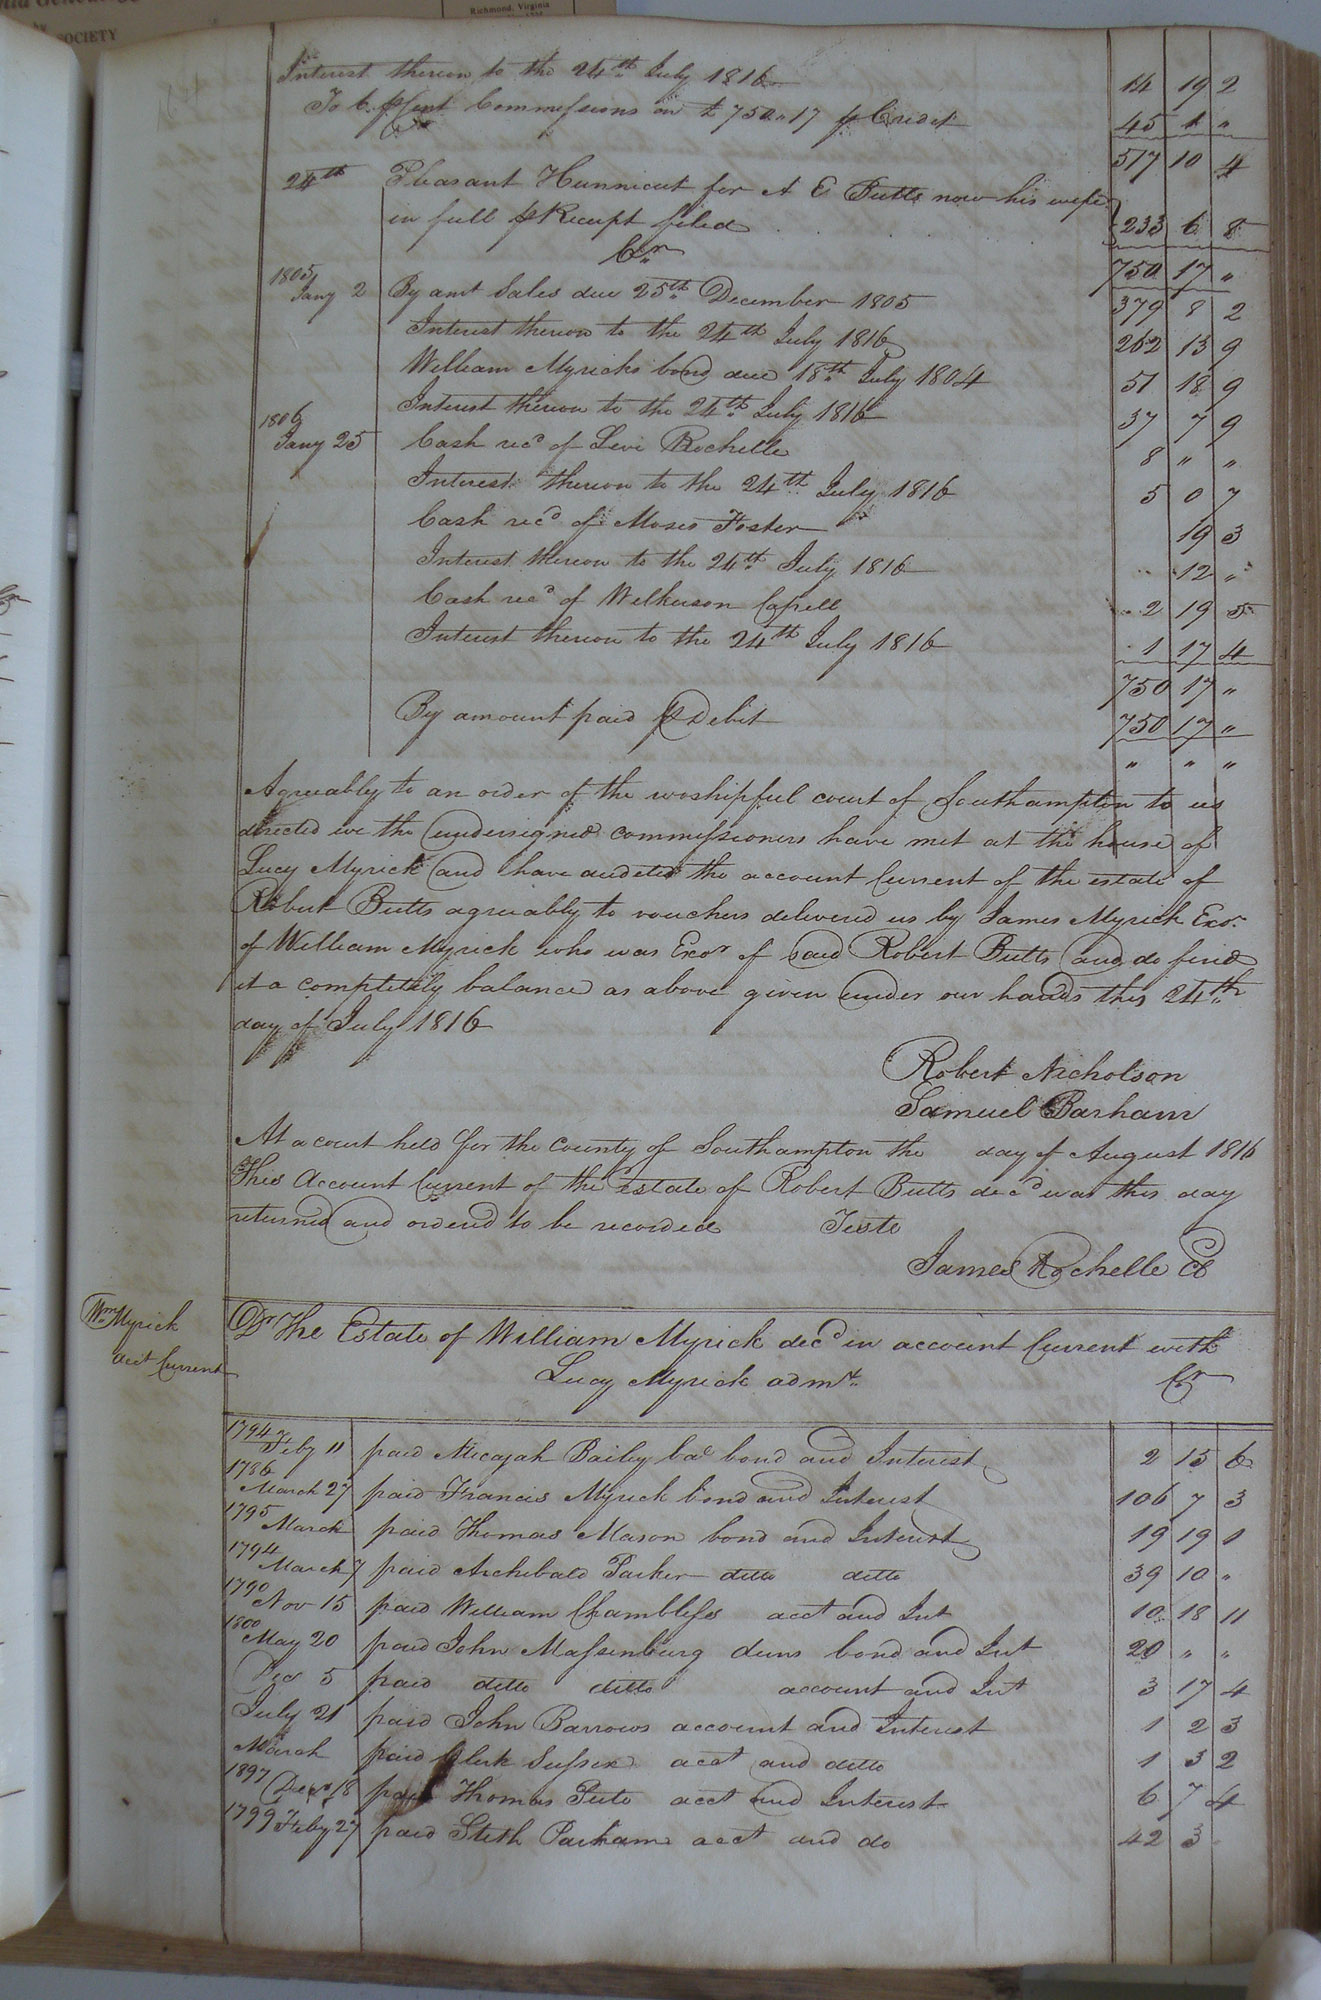 Richmond, Virginia
SOCIETY
Interest thereon to the 24th July 1816 14 19 2
To 6 pCent Commissions on £750..17 p Credit 45 1 "
517 10 4
24th Pleasant Hunnicut for A E Butts now his wife
in full p Receipt filed 233 6 8
Cr 750 17 "
1805
Jany 2 By amt Sales due 25th December 1805 379 8 2
Interest thereon to the 24th July 1816 262 13 9
William Myricks bond due 18th July 1804 51 18 9
Interest thereon to the 24th July 1816 37 7 9
1806
Jany 25 Cash recd of Levi Rochelle 8 " "
Interest thereon to the 24th July 1816 5 0 7
Cash recd of Moses Foster 19 3
Interest thereon to the 24th July 1816 12 "
Cash recd of Wilkerson Capell 2 19 5
Interest thereon to the 24th July 1816 1 17 4
750 17 "
By amount paid p Debit 750 17 "
" " "
Agreeably to an order of the worshipful court of Southampton to us
directed we the undersigned commissioners have met at the house of
Lucy Myrick and have audeted the account Current of the estate of
Robert Butts agreeably to vouchers delivered us by James Myrick Exor
of William Myrick who was Exor of said Robert Butts and do find
it a completely balance as above given under our hands this 24th
day of July 1816
Robert Nicholson
Samuel Barham
At a court held for the county of Southampton the day of August 1816
This Account Current of the estate of Robert Butts decd was this day
returned and ordered to be recorded Teste
James Rochelle Cl
Wm Myrick
acct Current
Dr The Estate of William Myrick decd in account Current with
Lucy Myrick admt Cr
1794
Feby 11 paid Micajah Bailey bal bond and Interest 2 15 6
1786
March 27 paid Francis Myrick bond and Interest 106 7 3
1795
March paid Thomas Mason bond and Interest 19 19 1
1794
March 7 paid Archibald Parker ditto ditto 39 10 "
1790
Nov 15 paid William Chambless acct and Int 10 18 11
1800
May 20 paid John Massenburg duns bond and Int 20 " "
Dec 5 paid ditto ditto account and Int 3 17 4
July 21 paid John Barrows account and Interest 1 2 3
March paid Clerk Sussex acct and ditto 1 3 2
1897
Decr 18 paid Thomas Peete acct and Interest 6 7 4
1799 Feby 27 paid Steth Parham acct and do 42 3